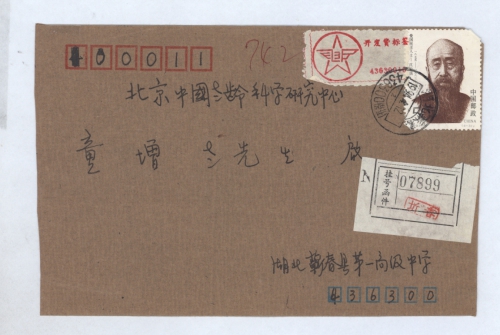 100011
7K2
开发费标签
中国邮政
北京中國老龄科学研究中心
童增老先生 啟
挂号函件
07899
湖北蕲春县第一高级中学
436300